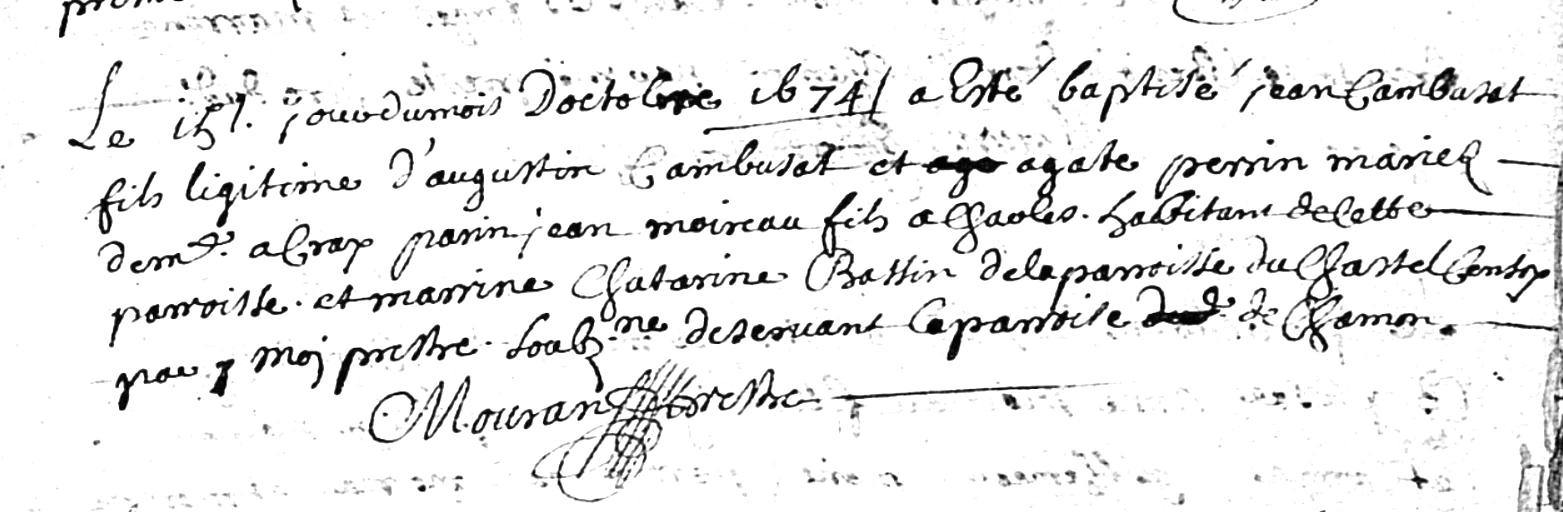 Le 15e. jour du mois Doctobre 1674 a Esté baptisé jean Cambusat
fils ligitime d'augustin Cambusat et agate perrin mariez
dem.t a Crap parin jean moireau fils a Charles. habitant de Cette
parroisse. et marrine Chatarine Bassin de la parroisse du Chastel Censoy
par moj prestre. soubz.ne deservant la parroise de Chamon.
Mouran prestre